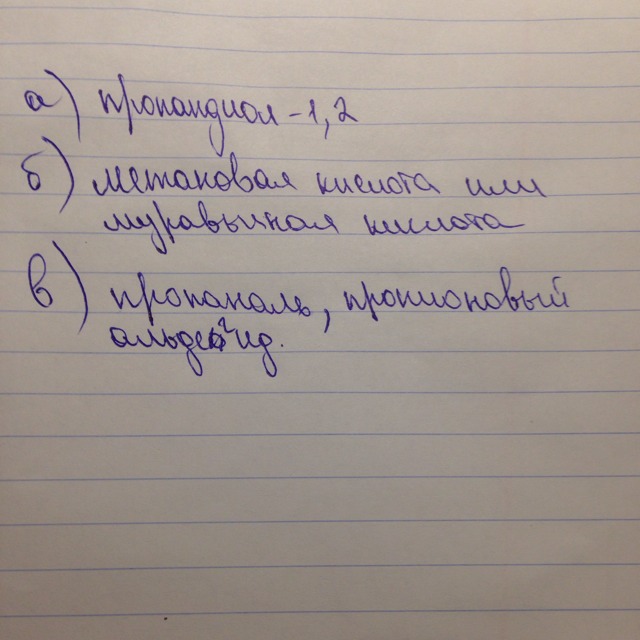 а) пропандиол-1,2
б) метановая кислота или
муравьиная кислота
в) пропаналь, пропионовый
альдегид.